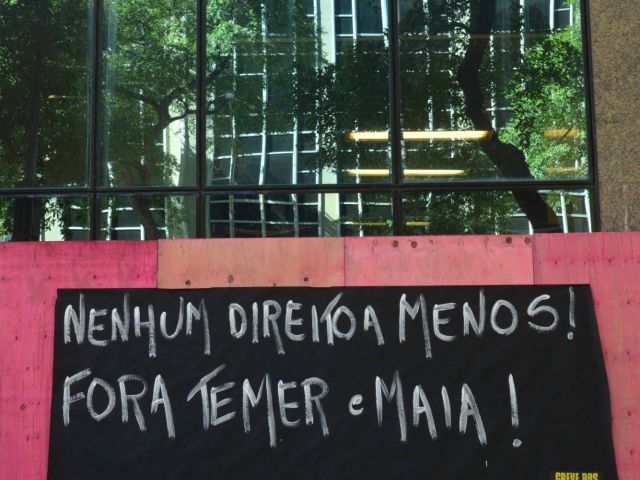 NENHUM DIREITO A MENOS!
FORA TEMER e MAIA !
GREVE DOS